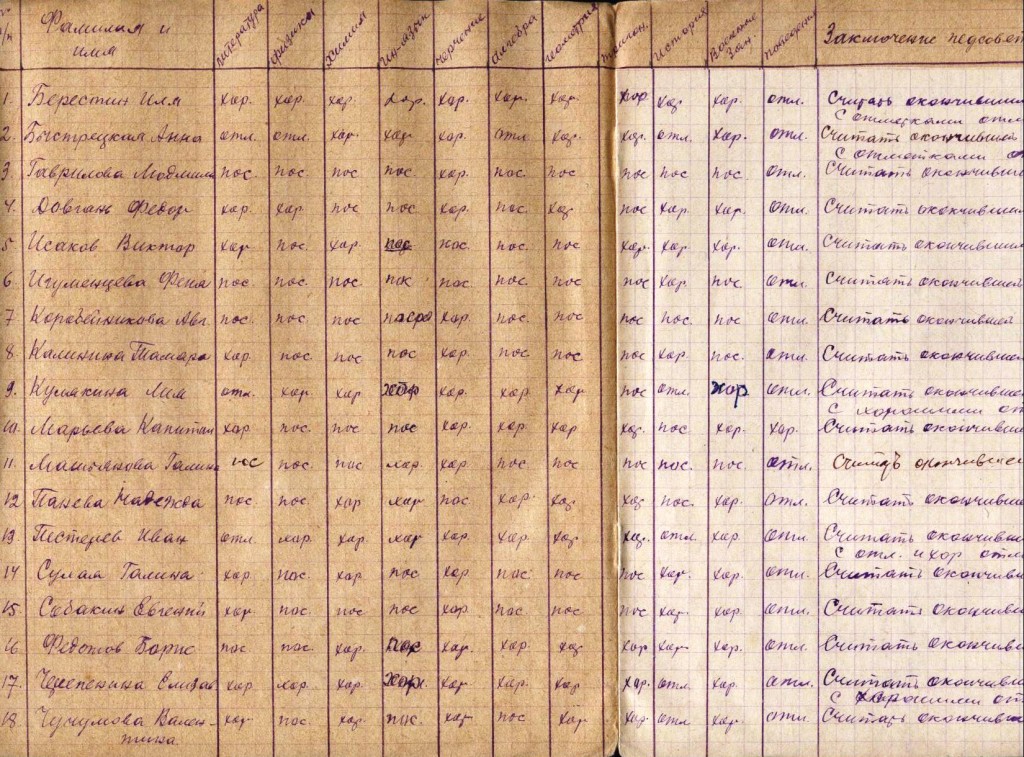 п/п Фамилия и имя литература физика химия Ин-язык черчение алгебра геометрия тригон. История Военные Зан. поведение Заключение педсовет
1. Берестин Илл хор. хор. хор. хор. хор. хор. хор. хор хор хор. отл. Считать окончивши
с отметками отл
2. Быстрецкая Анна отл. отл. хор. хор хор. отл хор. хор. отл. хор. отл. Считать окончившей
с отметками о
3. Гаврилова Людмила пос. пос. пос пос. хор. пос пос пос пос пос. отл. Считать окончивше
4. Довгань Федор хор. хор. пос пос хор. пос хор. пос хор. хор. отл. Считать окончивши
5 Исаков Виктор хор пос. хор. пос пос. пос. пос. хор. хор. хор. отл. Считать окончивши
6 Игуменцева Фена пос. пос. пос. пос пос. пос. пос. пос хор. пос отл. Считать окончившей
7 Коробейникова Авг. пос. пос. пос пос хор. пос. пос. пос пос. пос отл. Считать окончившей
8. Калинина Тамара хор. пос. пос пос хор. пос. пос. пос хор. пос. отл. Считать окончивше
9. Кулякина Лия отл. хор. хор. хор хор. хор. хор пос отл. хор отл. Считать окончивше
с хорошими от
10. Марьева Капитал хор пос. пос. пос хор. хор. хор хор. пос. хор. хор. Считать окончивше
11. Галина пос пос. пос. хор. хор пос. пос. пос пос. пос. отл. Считать окончившей
12 Панева Надежда пос пос. хор хор пос. хор. хор. хор пос. хор. отл. Считать окончивше
13 Пестерев Иван отл. хор. хор. хор хор. хор. хор. хор. отл. хор. отл. Считать окончивши
с отл. и хор отм
14 Сулая Галина хор. пос. хор. пос хор. пос. пос пос хор. хор. отл. Считать окончивше
15 Собакин Евгений хор. пос. пос пос хор. пос. пос. пос хор. хор. отл. Считать окончивши
16 Федотов Борис пос пос. хор. пос хор. хор. хор хор хор. хор. отл. Считать окончивши
17. Черепенина Елизав хор хор. хор. хор. хор хор. хор. хор. отл. хор. отл. Считать окончивше
с хорошими от
18 Чучумова Вален- хор. пос. хор. пос. хор пос хор хор отл хор. отл. Считать окончивше
тина